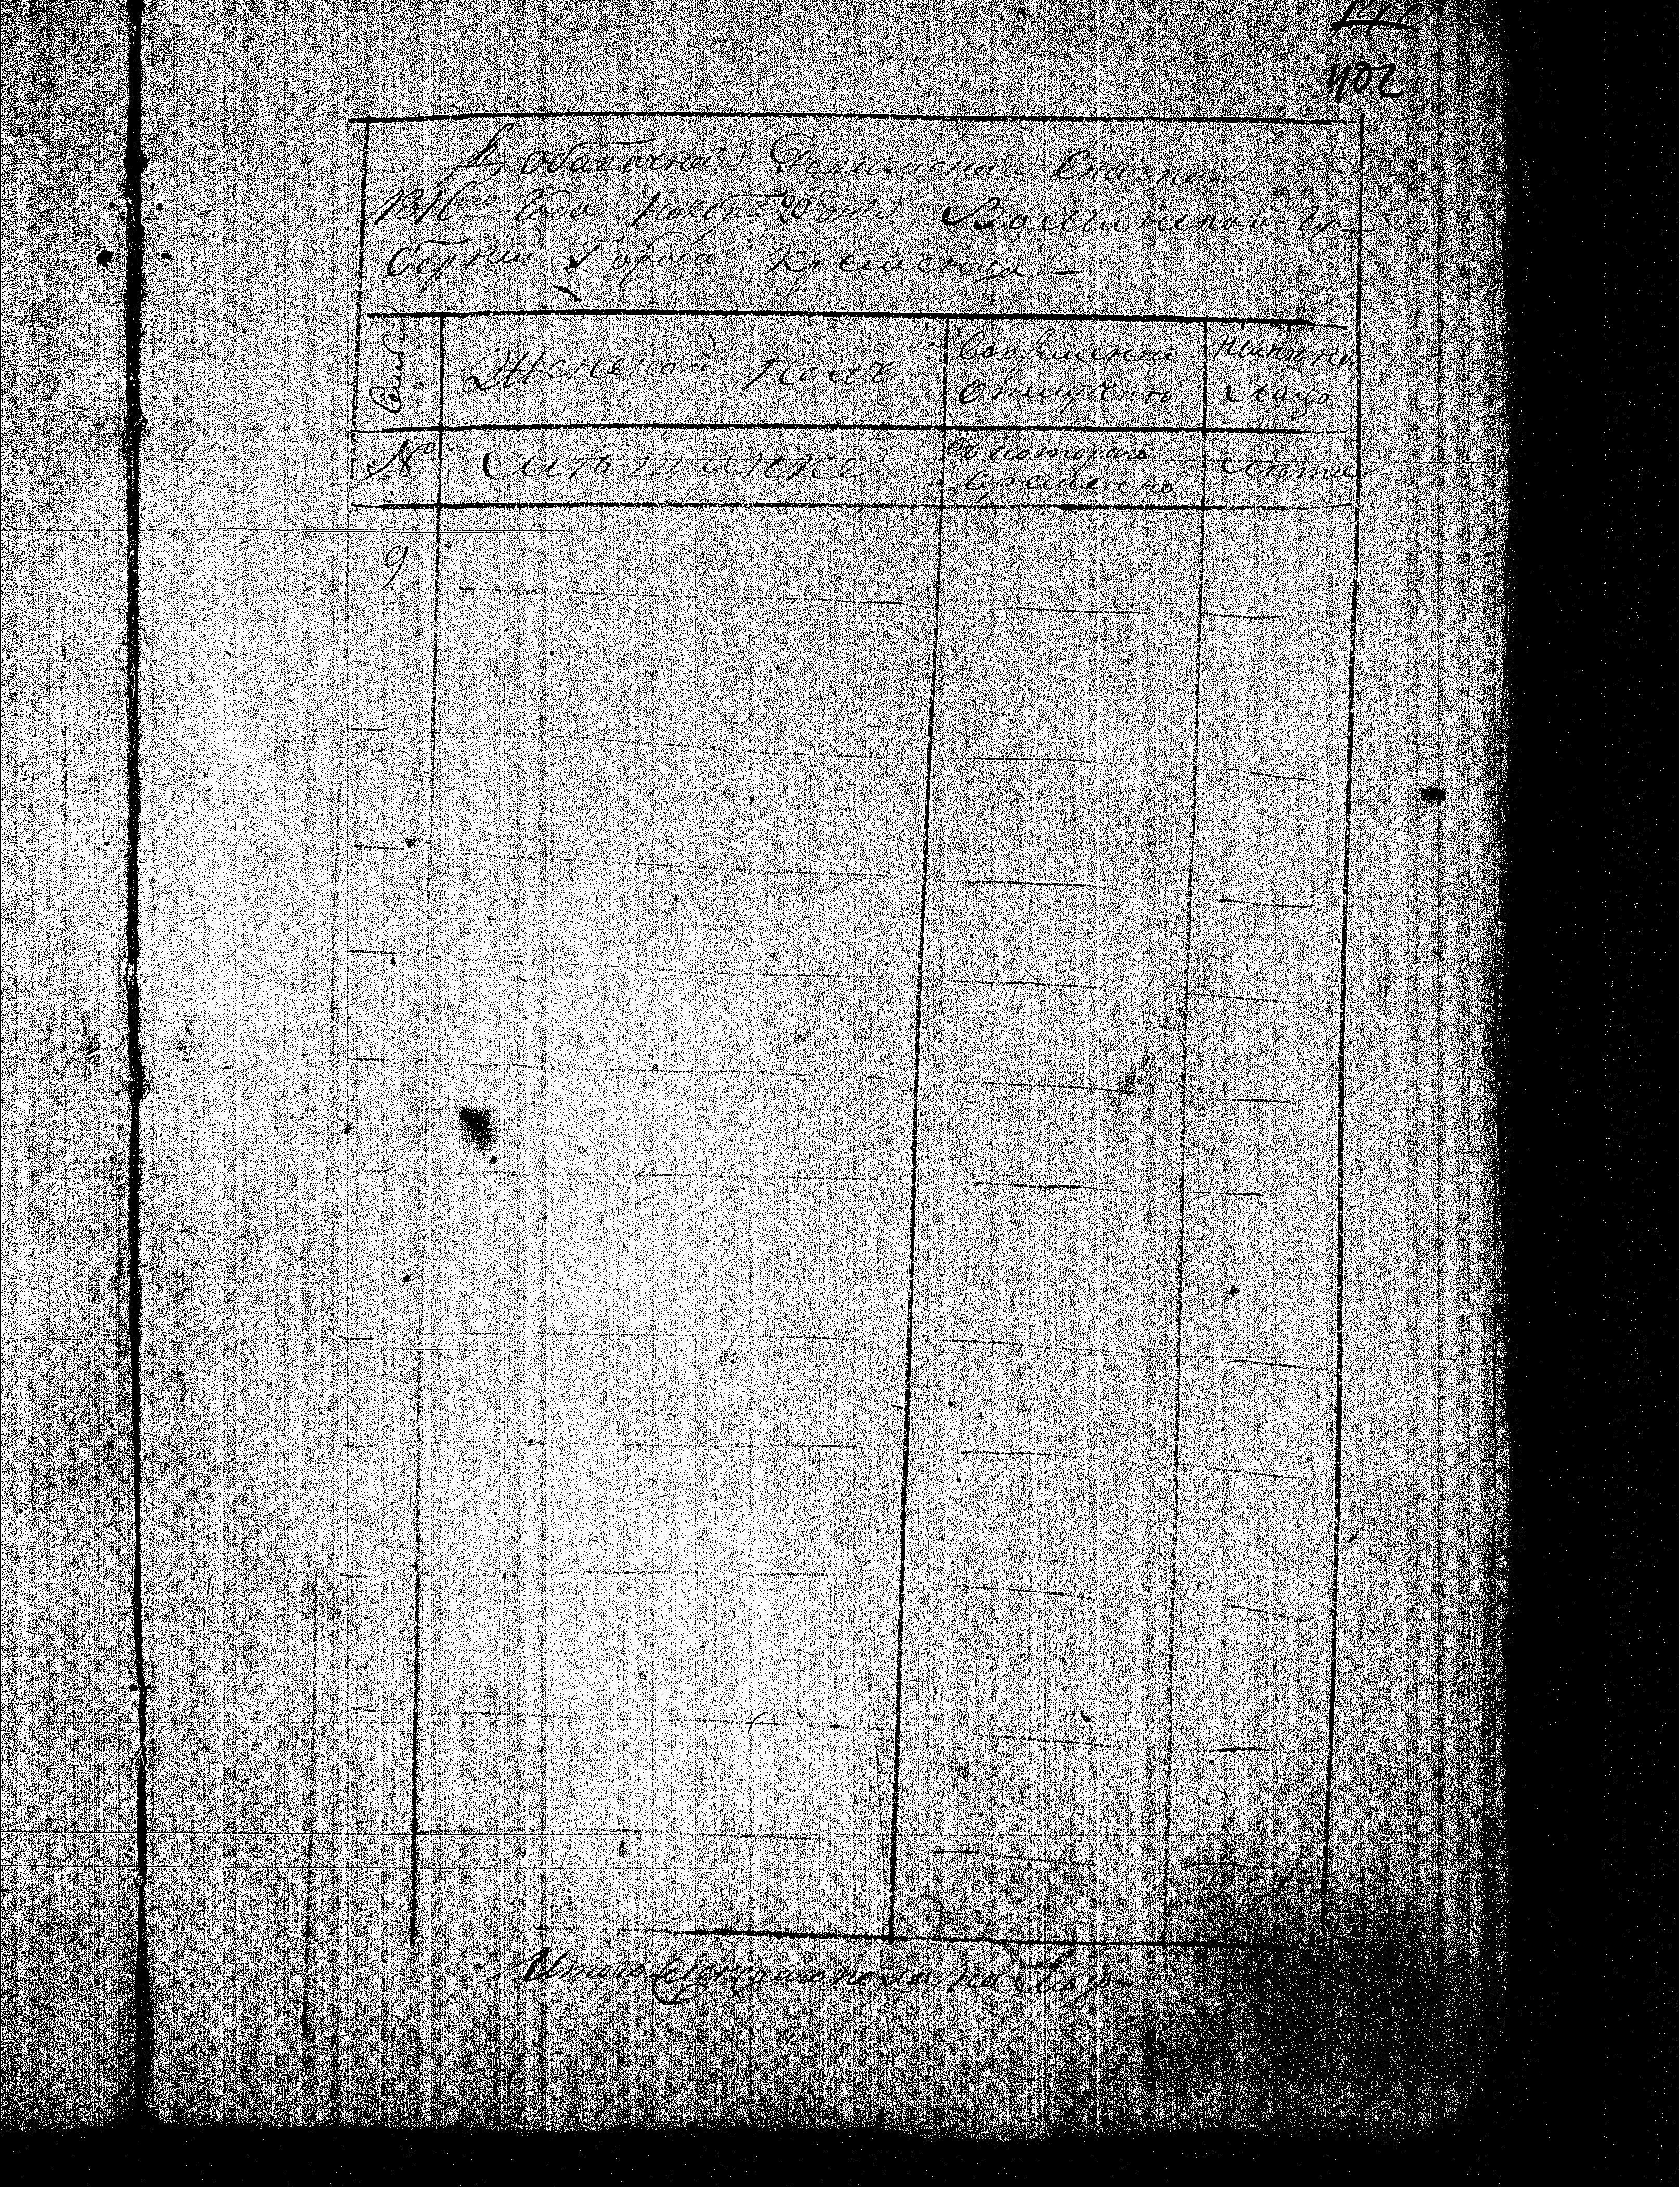 402
Добавочная Ревизская Сказка
1816го Года Ноября 20 дня Волынской Гу-
берний Города Кременца —
Семьи
Женской пол
Вовременно
отлучено
Ныне на
Лицо
№
Мѣщанке
съ котораго
времянно
Лѣта
9
Итого женскаго пола на Лицо